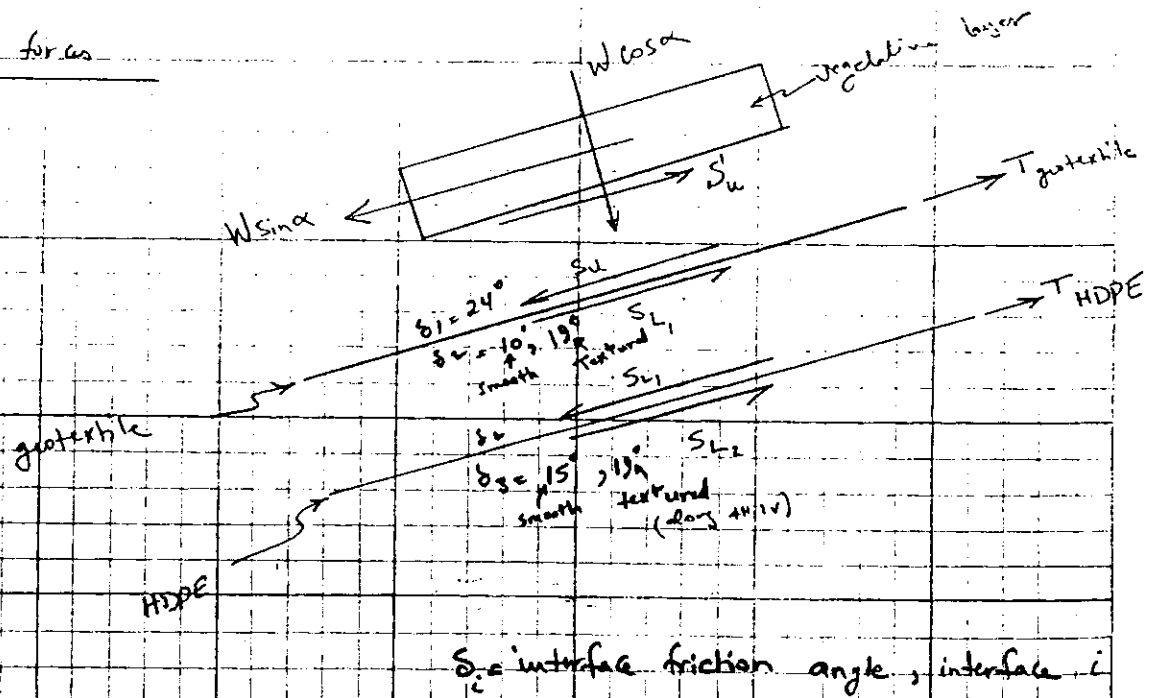 forces
W cosα
vegetative layer
S'u
T geotextile
W sinα
Su
T HDPE
δ1 = 24°
SL1
δ2 = 10°, 19°
smooth textured
SL1
geotextile
δ2
SL2
δ3 = 15°, 19°
smooth textured
(along 4H:1V)
HDPE
δi = interface friction angle, interface i